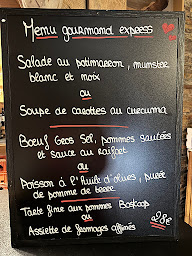 Menu gourmand express
Salade au potimarron, munster
blanc et noix
ou
Soupe de carottes au curcuma
Boeuf Gros Sel, pommes sautées
et sauce au raifort
ou
Poisson à l'Huile d'olives, purée
de pomme de terre
Tarte fine aux pommes Boskoop
ou
Assiette de fromages affinés
28€